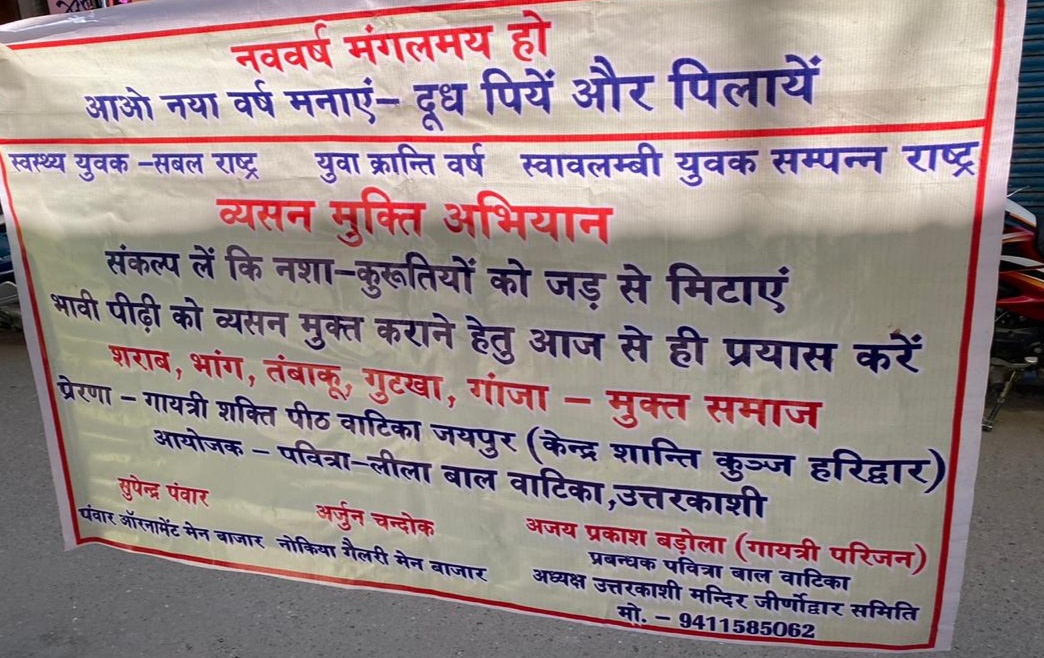 नववर्ष मंगलमय हो
आओ नया वर्ष मनाएं– दूध पियें और पिलायें
स्वस्थ्य युवक –सबल राष्ट्र युवा क्रान्ति वर्ष स्वावलम्बी युवक सम्पन्न राष्ट्र
व्यसन मुक्ति अभियान
संकल्प लें कि नशा–कुरूतियों को जड़ से मिटाएं
भावी पीढ़ी को व्यसन मुक्त कराने हेतु आज से ही प्रयास करें
शराब, भांग, तंबाकू, गुटखा, गांजा – मुक्त समाज
प्रेरणा – गायत्री शक्ति पीठ वाटिका जयपुर (केन्द्र शान्ति कुञ्ज हरिद्वार)
आयोजक – पवित्रा–लीला बाल वाटिका,उत्तरकाशी
सुपेन्द्र पंवार अर्जुन चन्दोक अजय प्रकाश बड़ोला (गायत्री परिजन)
पंवार ऑरनामेंट मेन बाजार नोकिया गैलरी मेन बाजार प्रबन्धक पवित्रा बाल वाटिका
अध्यक्ष उत्तरकाशी मन्दिर जीर्णोद्वार समिति
मो. – 9411585062